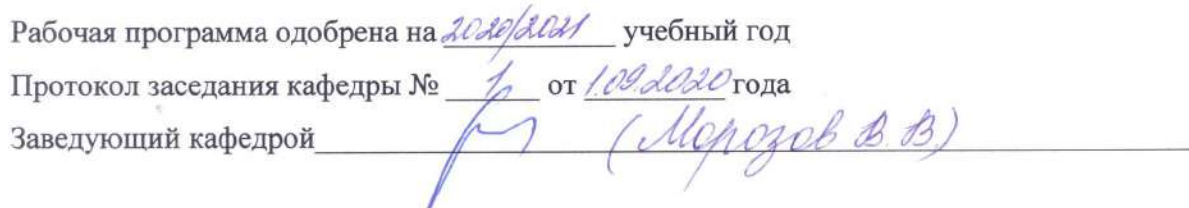 Рабочая программа одобрена на 2020/2021 учебный год
Протокол заседания кафедры № 1 от 1.09.2020 года
Заведующий кафедрой (Морозов В.В.)